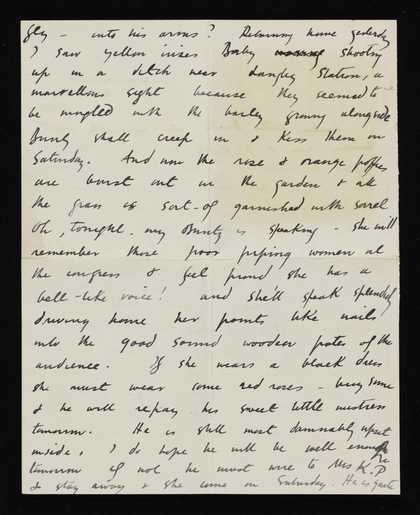 fly - into his arms? Returning home yesterday
I saw yellow irises shooting
up in a ditch near Langley Station, a
marvellous sight because they seemed to
be mingled with the barley growing alongside
Bunty shall creep in & kiss them on
Saturday. And now the rose & orange poppies
are burst out in the garden & all
the grass is sort-of garnished with sorrel
Oh, tonight - my Bunty is speaking - she will
remember those poor piping women at
the congress & feel proud she has a
bell-like voice! and she'll speak splendidly
driving home her points like nails
into the good sound wooden pates of the
audience. If she wears a black dress
she must wear some red roses - buy some
& he will repay his sweet little mistress
tomorrow. He is still most damnably upset
inside, I do hope he will be well enough
tomorrow if not he must wire to Mrs K.P
& stay away & she come on Saturday. He is quite